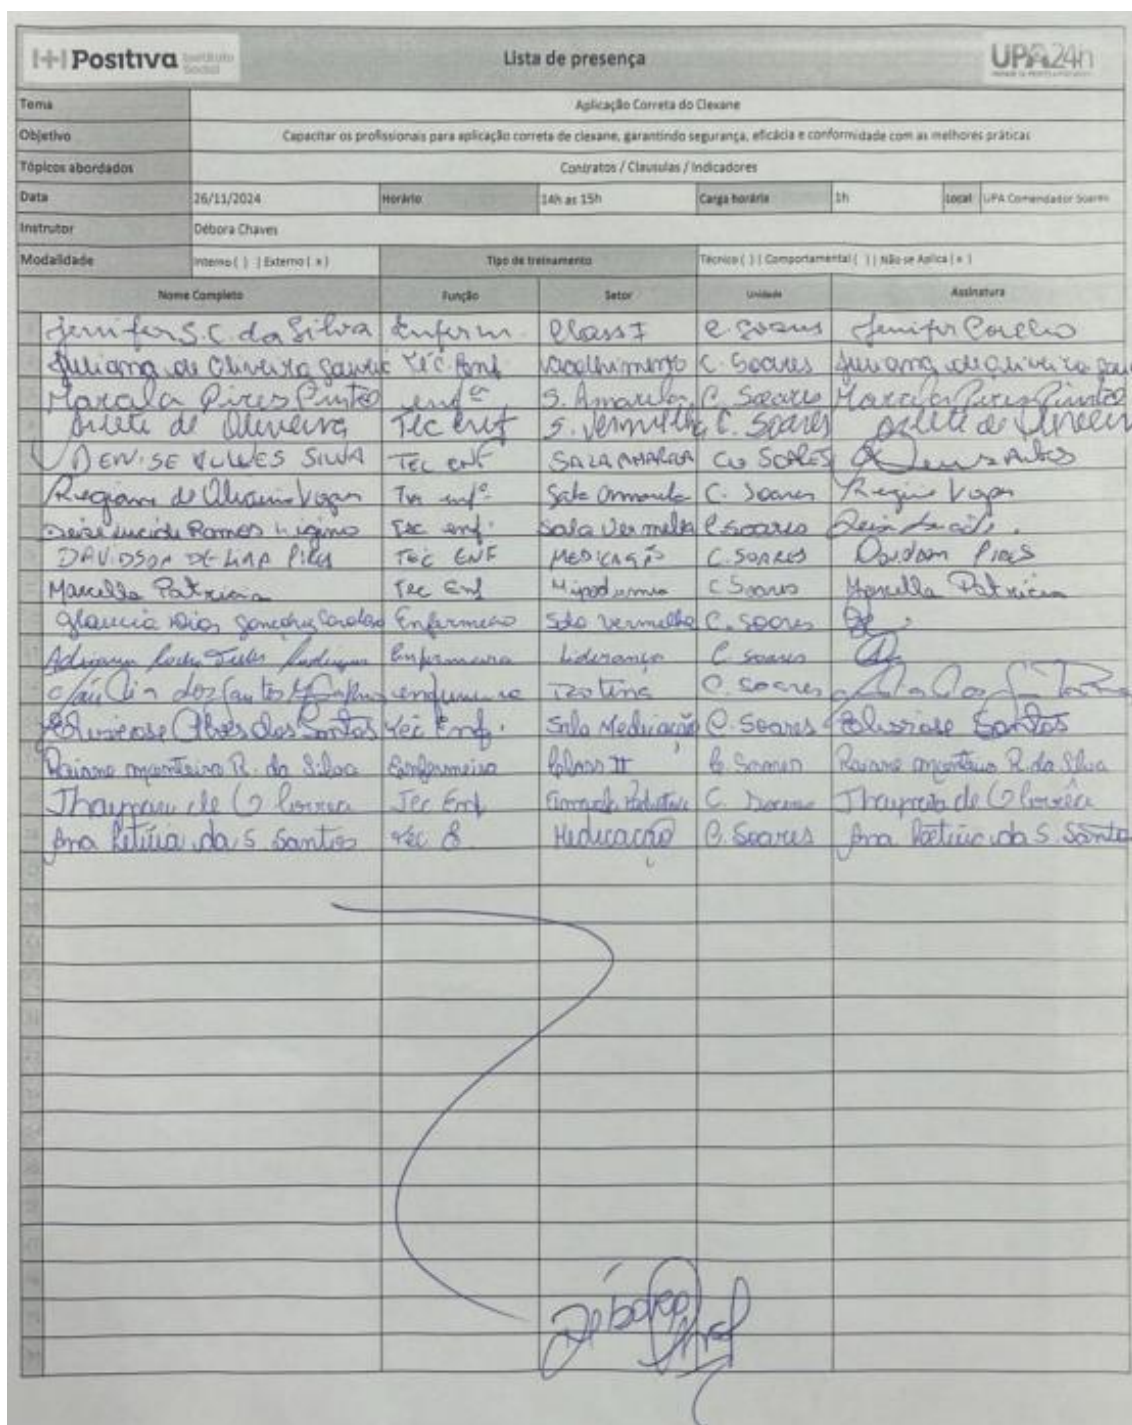 Positiva Instituto Social Lista de presença UPA24h
Tema Aplicação Correta do Clexane
Objetivo Capacitar os profissionais para aplicação correta de clexane, garantindo segurança, eficácia e conformidade com as melhores práticas
Tópicos abordados Contratos / Clausulas / Indicadores
Data 26/11/2024 Horário 14h as 15h Carga horária 1h Local UPA Comendador Soares
Instrutor Débora Chaves
Modalidade Interno ( ) | Externo ( x ) Tipo de treinamento Técnico ( ) | Comportamental ( ) | Não se Aplica ( x )
Nome Completo Função Setor Unidade Assinatura
Jenifer S. C. da Silva Enferm. Class I C. Soares Jenifer Coelho
Juliana de Oliveira Téc. Enf Acolhimento C. Soares Juliana de Oliveira
Marcela Pires Pinto enfª S. Amarela C. Soares Marcela Pires Pinto
de Oliveira Tec enf S. Vermelha C. Soares de Oliveira
DENISE SILVA TEC ENF SALA AMARELA SOARES
Regiane de Sala Amarela C. Soares
Ramos Tec enf. Sala Vermelha C. Soares
DAVIDSON DE LIMA PIRES TEC ENF MEDICAÇÃO C. SOARES Davidson Pires
Marcella Patricia Tec Enf Hipodermia C Soares Marcella Patricia
Glaucia Dias Enfermeiro Sala Vermelha C. Soares
Enfermeira Liderança C. Soares
dos Santos enfermeira Rotina C. Soares
Alves dos Santos Tec Enf. Sala Medicação C. Soares Santos
Raiane Monteiro R. da Silva Enfermeira Class II C. Soares Raiane Monteiro R. da Silva
de Corrêa Tec Enf C. Soares de Corrêa
Ana Letícia da S. Santos Téc E Medicação C. Soares Ana Letícia da S. Santos
Débora